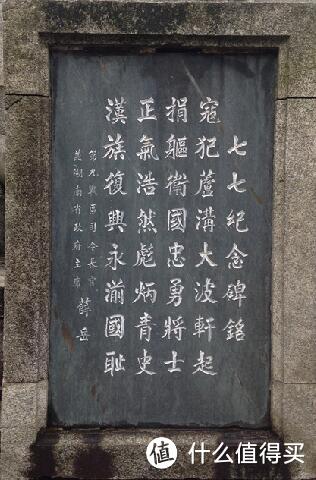 七七紀念碑銘
寇犯蘆溝大波軒起
捐軀衛國忠勇將士
正氣浩然彪炳青史
漢族復興永湔國恥
第九戰區司令長官
兼湖南省政府主席
薛岳
值 什么值得买